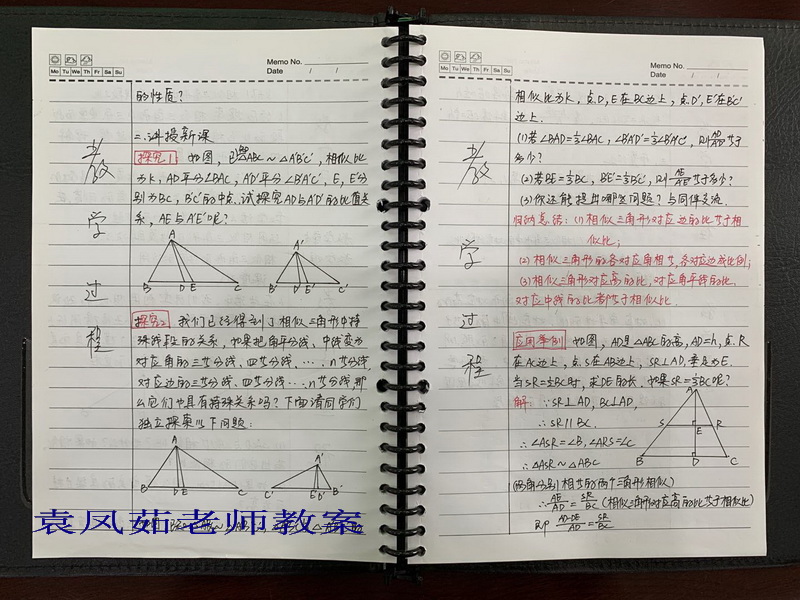 Memo No.
Mo Tu We Th Fr Sa Su
Date / /
教
学
过
程
的性质?
二.讲授新课
探究1 如图,已知△ABC∽△A'B'C',相似比
为k,AD平分∠BAC,A'D'平分∠B'A'C',E、E'分
别为BC,B'C'的中点.试探究AD与A'D'的比值关
系,AE与A'E'呢?
A
B D E C
A'
B' D' E' C'
探究2 我们已经得到了相似三角形中特
殊线段的关系,如果把角平分线、中线变为
对应角的三等分线、四等分线、…,n等分线,
对应边的三等分线、四等分线…,n等分线,那
么它们也具有特殊关系吗?下面请同学们
独立探索以下问题:
A
B D E C
A'
C' E' B'
袁凤茹老师教案
Memo No.
Mo Tu We Th Fr Sa Su
Date / /
教
学
过
程
相似比为k,点D、E在BC边上,点D'、E'在B'C'
边上.
(1)若∠BAD=⅓∠BAC,∠B'A'D'=⅓∠B'A'C',则AD/A'D'等于
多少?
(2)若BE=⅓BC,B'E'=⅓B'C',则AE/A'E'等于多少?
(3)你还能提出哪些问题?与同伴交流.
归纳总结:(1)相似三角形对应边的比等于相
似比;
(2)相似三角形的各对应角相等,各对应边成比例;
(3)相似三角形对应高的比、对应角平线的比、
对应中线的比都等于相似比.
应用举例 如图,AD是△ABC的高,AD=h,点R
在AC边上,点S在AB边上,SR⊥AD,垂足为E.
当SR=½BC时,求DE的长,如果SR=⅓BC呢?
解:∵SR⊥AD,BC⊥AD,
∴SR∥BC.
∴∠ASR=∠B,∠ARS=∠C
∴△ASR∽△ABC
(两角分别相等的两个三角形相似)
∴AE/AD=SR/BC(相似三角形对应高的比等于相似比)
即 AD-DE/AD=SR/BC
A
S E R
B D C